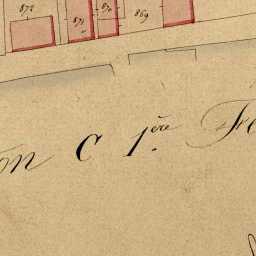 872
871
870
869
on C 1ère Fe